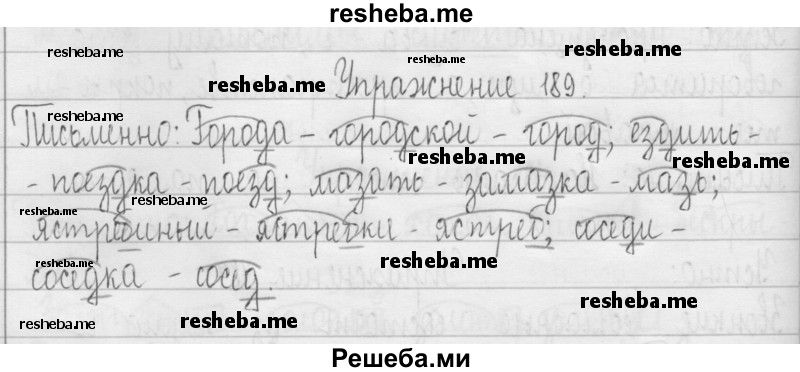 resheba.me
resheba.me resheba.me resheba.me
resheba.me Упражнение 189.
resheba.me
Письменно: Города – городской – город, ездить –
resheba.me resheba.me
– поездка – поезд; мазать – замазка – мазь;
resheba.me
resheba.me
ястребиный – ястребки – ястреб, соседи –
resheba.me resheba.me
соседка – сосед.
resheba.me
resheba.me resheba.me
Решеба.ми